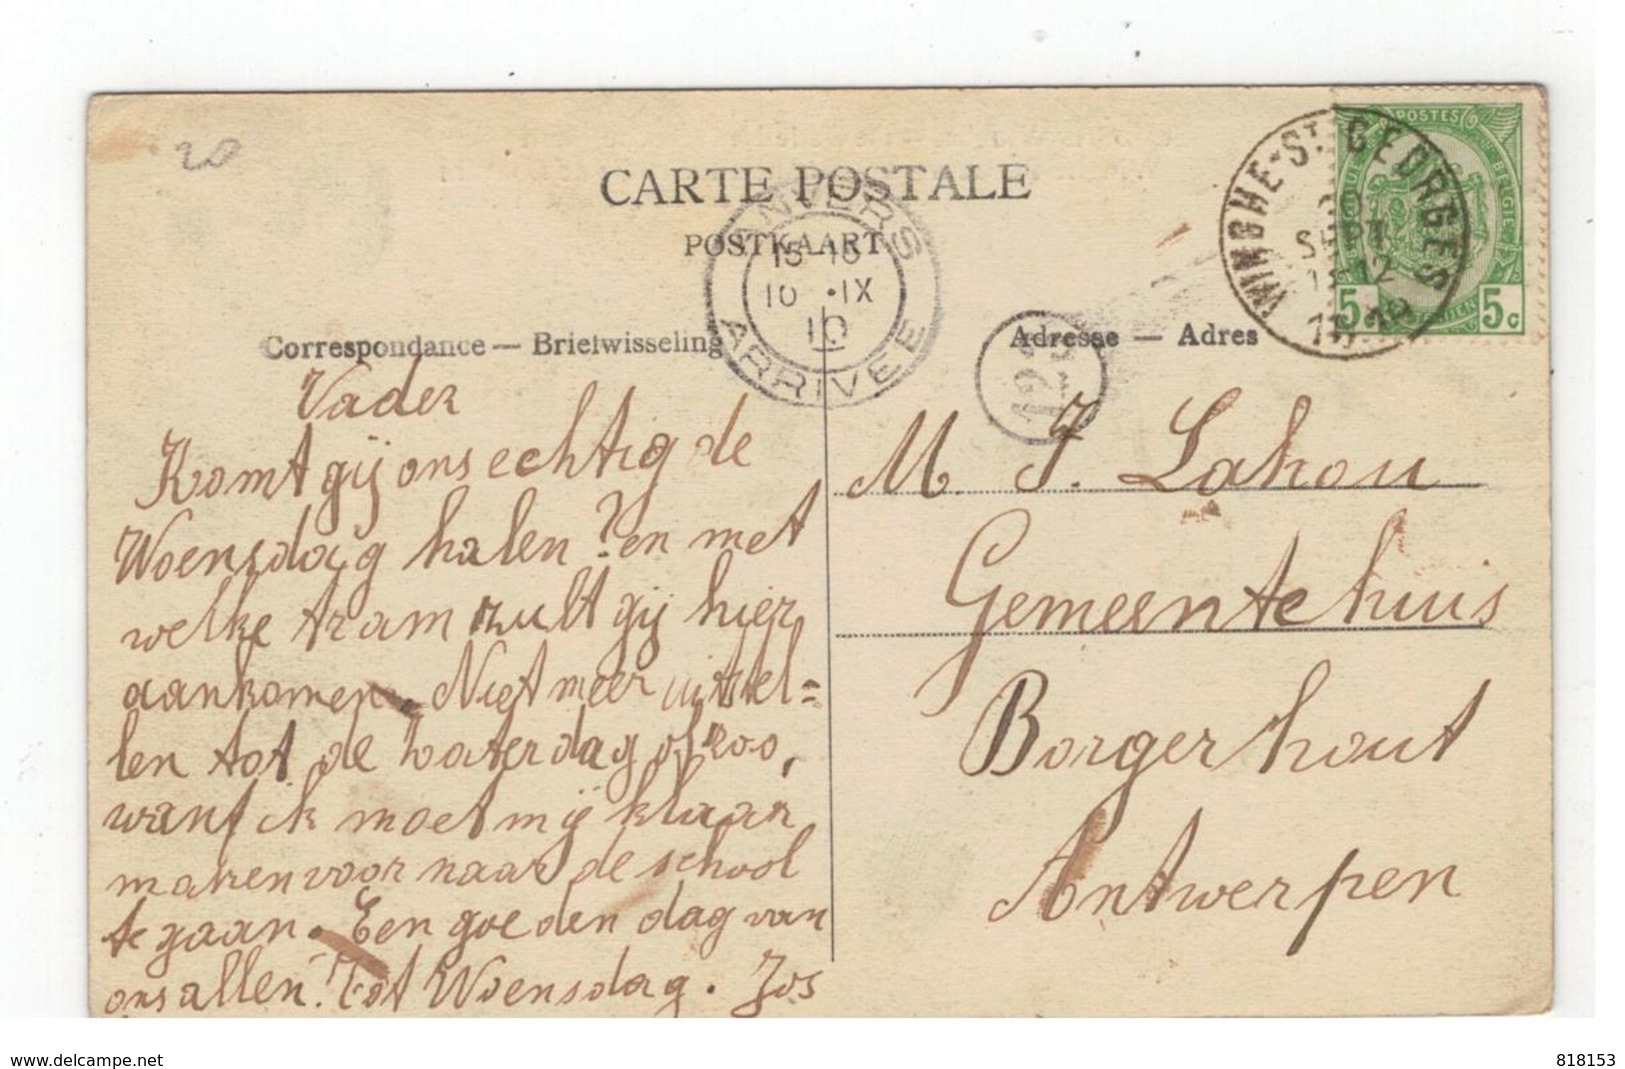 20
CARTE POSTALE
POSTKAART
ANVERS
15-16
10 · IX
10
ARRIVEE
WINGHE-ST GEORGES
SEPT
POSTES
BELGIQUE
BELGIË
5c
5c
121
Correspondance — Briefwisseling
Adresse — Adres
Vader
Komt gij ons echtig de
Woensdag halen? en met
welke tram zult gij hier
aankomen. Niet meer uitstel=
len tot de zaterdag of zoo,
want ik moet mij klaar
maken voor naar de school
te gaan. Een goeden dag van
ons allen! Tot Woensdag. Jos
M. J. Lahou
Gemeentehuis
Borgerhout
Antwerpen
www.delcampe.net
818153